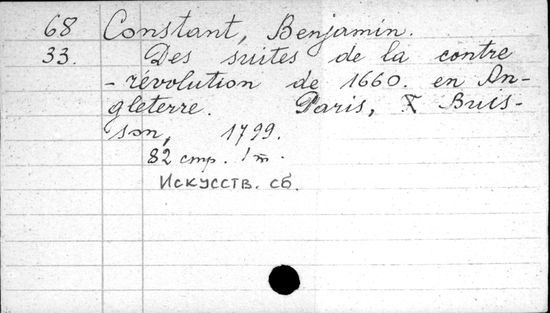 68 Constant, Benjamin.
33. Des suites de la contre
-révolution de 1660. en An-
gleterre. Paris, Buis-
son, 1799.
82 стр. 1 т.
Искусств. сб.